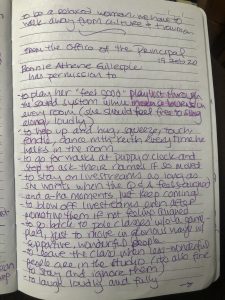 to be a relaxed woman, we have to
walk away from culture & tradition
From the Office of the Principal
19 Feb 20
Bonnie Athene Gillespie
has permission to
to play her "feel good" playlist through
the sound system
every room (she should feel free to sing
along, loudly)
to help up and hug, squeeze, touch
fondle, dance with Keith every time he
walks in the room
to go for walks at puppy o'clock and
stop to ask their names if so moved
to stay on live streams as long as
she wants when the Q's & feels
and a-ha moments just keep coming
to blow off livestreams even after
promoting them if not feeling moved
to go back to take classes w/o a game
plan, just to move in glorious ways w/
supportive, wonderful people
to leave the class when less-wonderful
people are in the studio (its also fine
to stay and ignore them)
to laugh loudly and fully